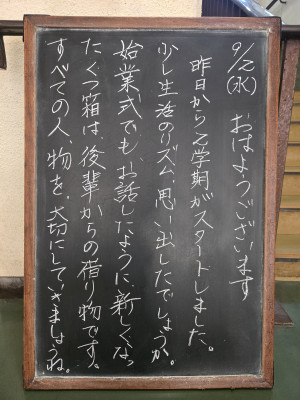 9/2(水) おはようございます
昨日から2学期がスタートしました。
少し生活のリズム、思い出したでしょうか。
始業式でも、お話したように、新しくなっ
たくつ箱は、後輩からの借り物です。
すべての人、物を、大切にしていきましょうね。